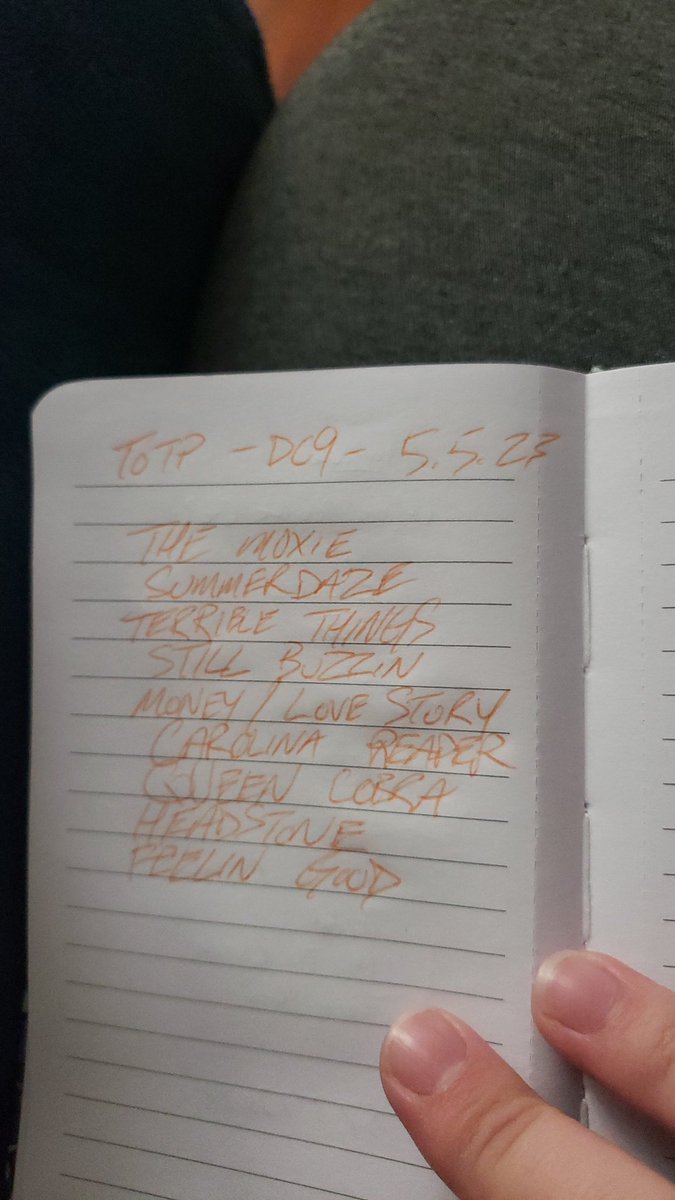 TOTP - DC9 - 5.5.23
THE MOXIE
SUMMERDAZE
TERRIBLE THINGS
STILL BUZZIN
MONEY / LOVE STORY
CAROLINA REAPER
QUEEN COBRA
HEADSTONE
FEELIN GOOD